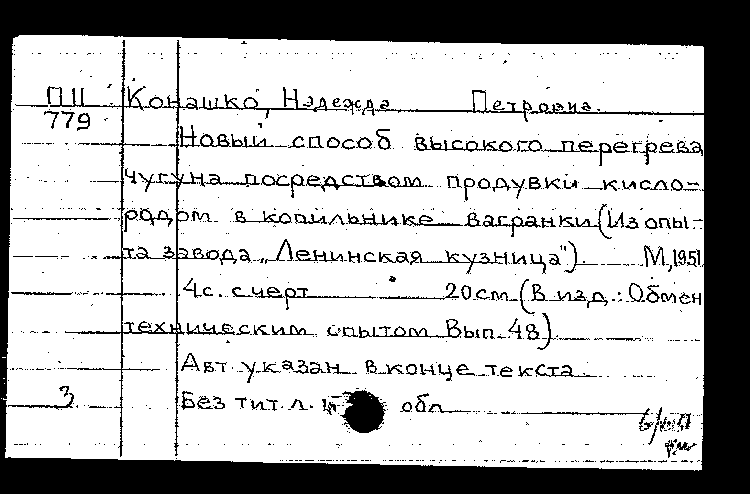 П11 Конашко, Надежда Петровна.
779
Новый способ высокого перегрева
чугуна посредством продувки кисло-
родом в копильнике вагранки (Из опы-
та завода „Ленинская кузница"). М, 1951
4 с. с черт 20 см (В изд.: Обмен
техническим опытом Вып. 48)
Авт указан в конце текста
3 Без тит. л. и обл